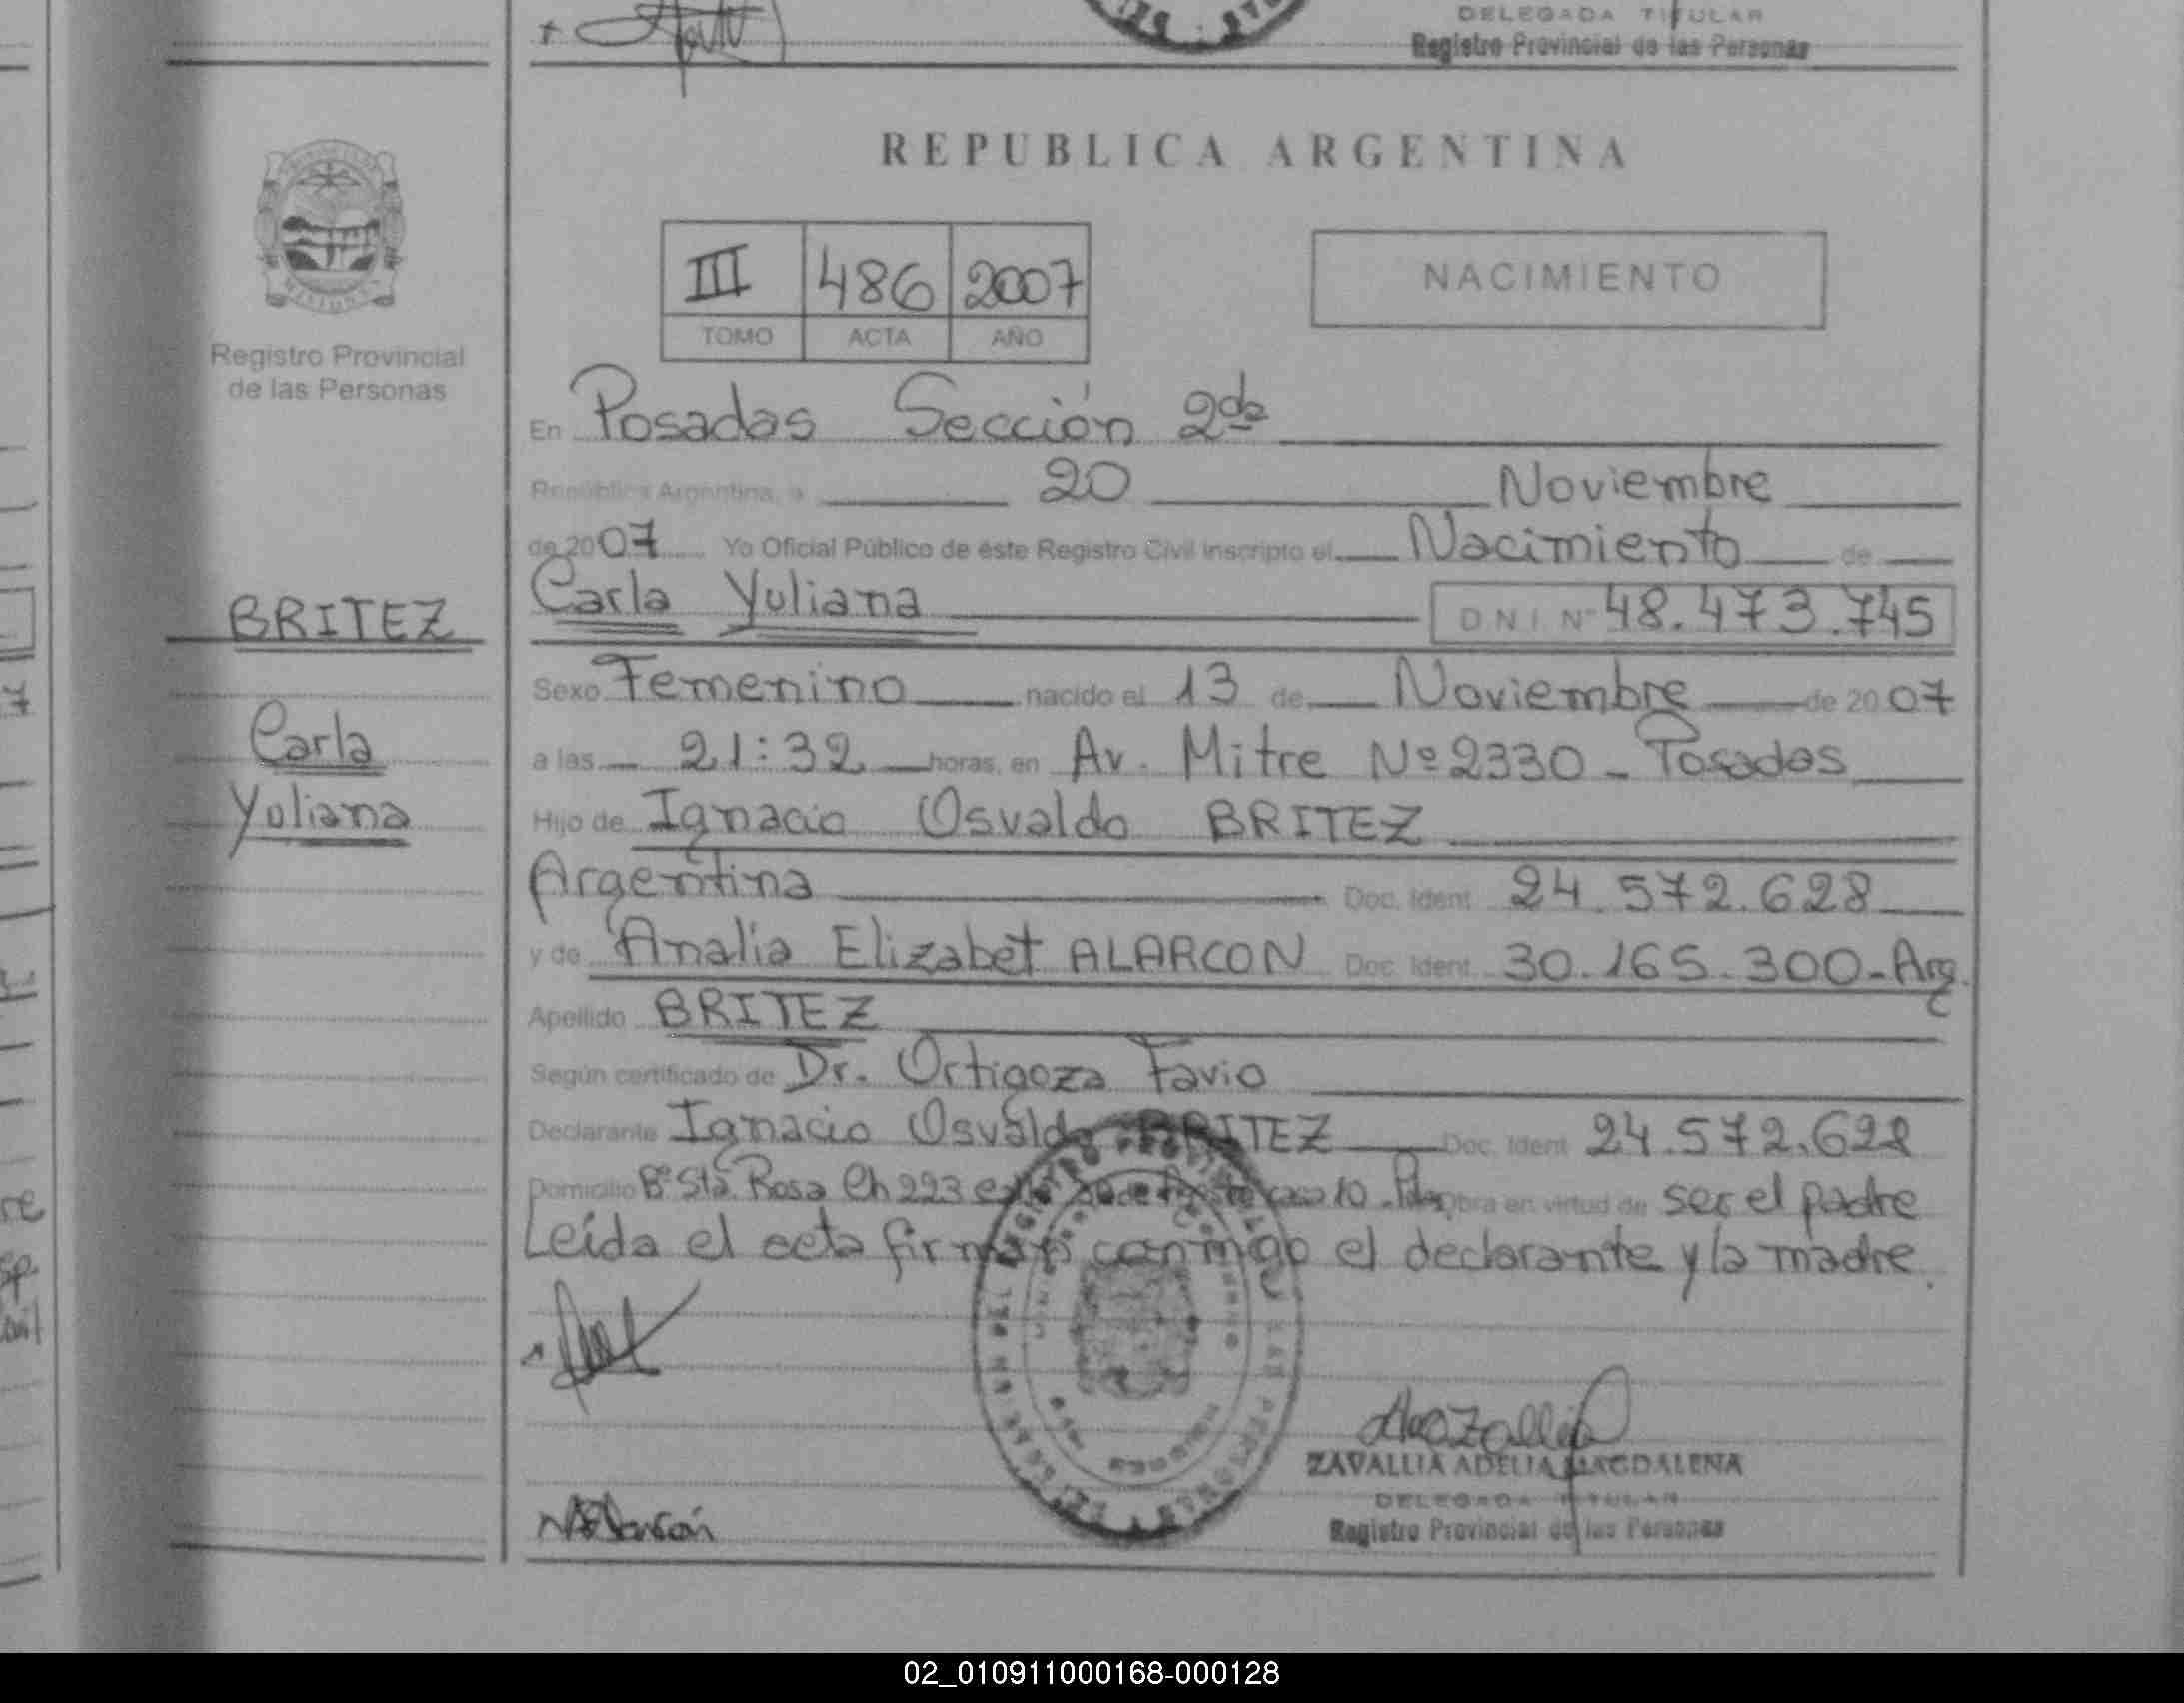 DELEGADA TITULAR
Registro Provincial de las Personas
REPUBLICA ARGENTINA
III 486 2007
TOMO ACTA AÑO
NACIMIENTO
MISIONES
Registro Provincial
de las Personas
BRITEZ
Carla
Yuliana
En Posadas Sección 2da
República Argentina, a 20 Noviembre
de 2007 Yo Oficial Público de éste Registro Civil inscripto el Nacimiento de
Carla Yuliana D N I Nº 48.473.745
Sexo Femenino nacido el 13 de Noviembre de 2007
a las 21:32 horas, en Av. Mitre Nº 2330 - Posadas
Hijo de Ignacio Osvaldo BRITEZ
Argentina Doc. Ident 24.572.628
y de Analia Elizabet ALARCON Doc. Ident. 30.165.300-Arg.
Apellido BRITEZ
Según certificado de Dr. Ortigoza Favio
Declarante Ignacio Osvaldo BRITEZ Doc. Ident 24.572.628
Domicilio Bº Sta Rosa Ch 223 casa 10 - Obra en virtud de ser el padre
Leída el acta firman conmigo el declarante y la madre.
ZAVALLIA ADELIA MAGDALENA
DELEGADA TITULAR
Registro Provincial de las Personas
02_010911000168-000128